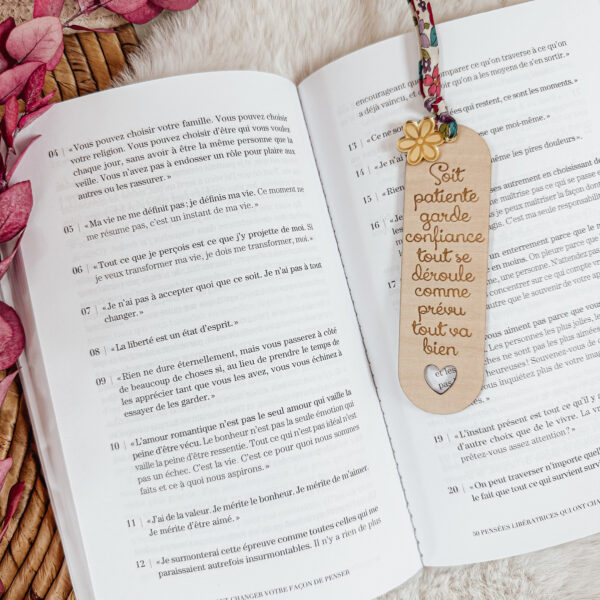 04 | «Vous pouvez choisir votre famille. Vous pouvez choisir
votre religion. Vous pouvez choisir d'être qui vous voulez
chaque jour, sans avoir à être la même personne que la
veille. Vous n'avez pas à endosser un rôle pour plaire aux
autres ou les rassurer.»
05 | «Ma vie ne me définit pas; je définis ma vie. Ce moment ne
me résume pas, c'est un instant de ma vie.»
06 | «Tout ce que je perçois est ce que j'y projette de moi. Si
je veux transformer ma vie, je dois me transformer, moi.»
07 | «Je n'ai pas à accepter quoi que ce soit. Je n'ai pas à tout
changer.»
08 | «La liberté est un état d'esprit.»
09 | «Rien ne dure éternellement, mais vous passerez à côté
de beaucoup de choses si, au lieu de prendre le temps de
les apprécier tant que vous les avez, vous vous échinez à
essayer de les garder.»
10 | «L'amour romantique n'est pas le seul amour qui vaille la
peine d'être vécu. Le bonheur n'est pas la seule émotion qui
vaille la peine d'être ressentie. Tout ce qui n'est pas idéal n'est
pas un échec. C'est la vie. C'est ce pour quoi nous sommes
faits et ce à quoi nous aspirons.»
11 | «J'ai de la valeur. Je mérite le bonheur. Je mérite de m'aimer.
Je mérite d'être aimé.»
12 | «Je surmonterai cette épreuve comme toutes celles qui me
paraissaient autrefois insurmontables. Il n'y a rien de plus
CHANGER VOTRE FAÇON DE PENSER
encourageant que comparer ce qu'on traverse à ce qu'on
a déjà vaincu, et qu'on a les moyens de s'en sortir.»
13 | «Ce ne qui restent, ce sont les moments.»
14 | «Je que moi-même.»
15 | «Rien mes pires douleurs.»
16 | «Je autrement en choisissant de
maîtrise pas ce qui se passe
je peux maîtriser la façon dont
C'est ma seule responsabilité
17 | un enterrement parce que
en moins. On pleure parce
une personne. N'attendez pas
concentrer sur ce qui compte
autre que le souvenir de votre
aiment pas parce que
Les personnes les plus jolies, les
ne sont pas les plus aimées.
heureuses! Souvenez-vous de
inquiétez plus de votre
et les
pas
Soit
patiente
garde
confiance
tout se
déroule
comme
prévu
tout va
bien
19 | «L'instant présent est tout ce qu'il y
d'autre choix que de le vivre. La
prêtez-vous assez attention?»
20 | «On peut traverser n'importe
le fait que tout ce qui survient
50 PENSÉES LIBÉRATRICES QUI ONT